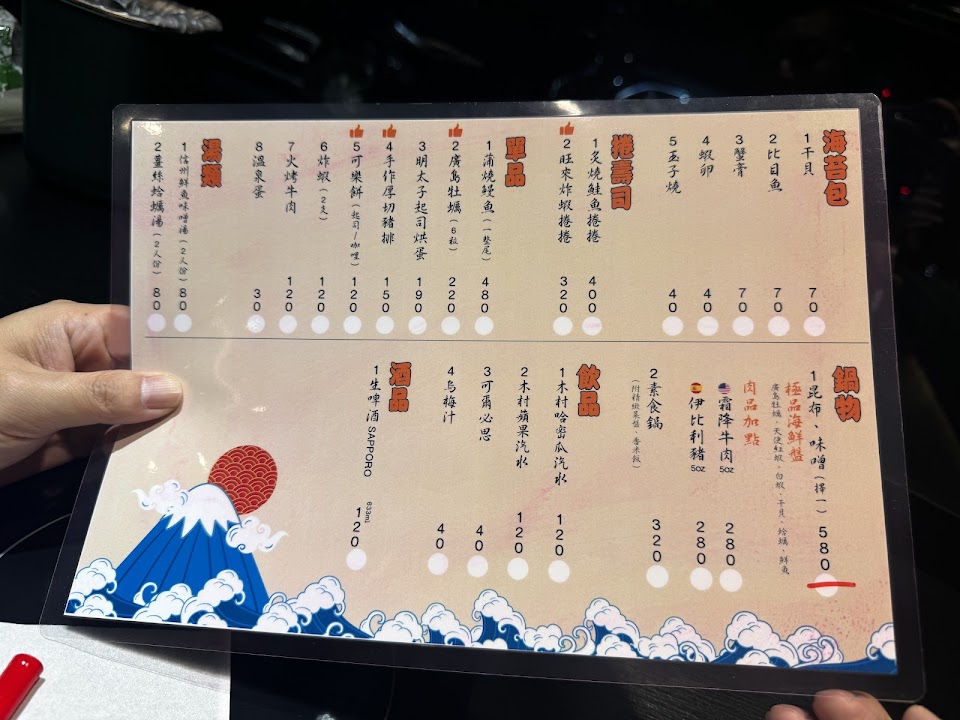 海苔包
1干貝 70
2比目魚 70
3蟹膏 70
4蝦卵 40
5玉子燒 40
捲壽司
1炙燒鮭魚捲捲 400
2旺來炸蝦捲捲 320
單品
1蒲燒鰻魚(一整尾) 480
2廣島牡蠣(6粒) 220
3明太子起司烘蛋 190
4手作厚切豬排 150
5可樂餅(起司/咖哩) 120
6炸蝦(2支) 120
7火烤牛肉 120
8溫泉蛋 30
湯類
1信州鮮魚味噌湯(2人份) 80
2薑絲蛤蠣湯(2人份) 80
鍋物
1昆布、味噌(擇一) 580
極品海鮮盤
廣島牡蠣、天使紅蝦、白蝦、干貝、蛤蠣、鮮魚
肉品加點
霜降牛肉 5oz 280
伊比利豬 5oz 280
2素食鍋 320
(附精緻菜盤、香米飯)
飲品
1木村哈密瓜汽水 120
2木村蘋果汽水 120
3可爾必思 40
4烏梅汁 40
酒品
1生啤酒 SAPPORO 633mL 120